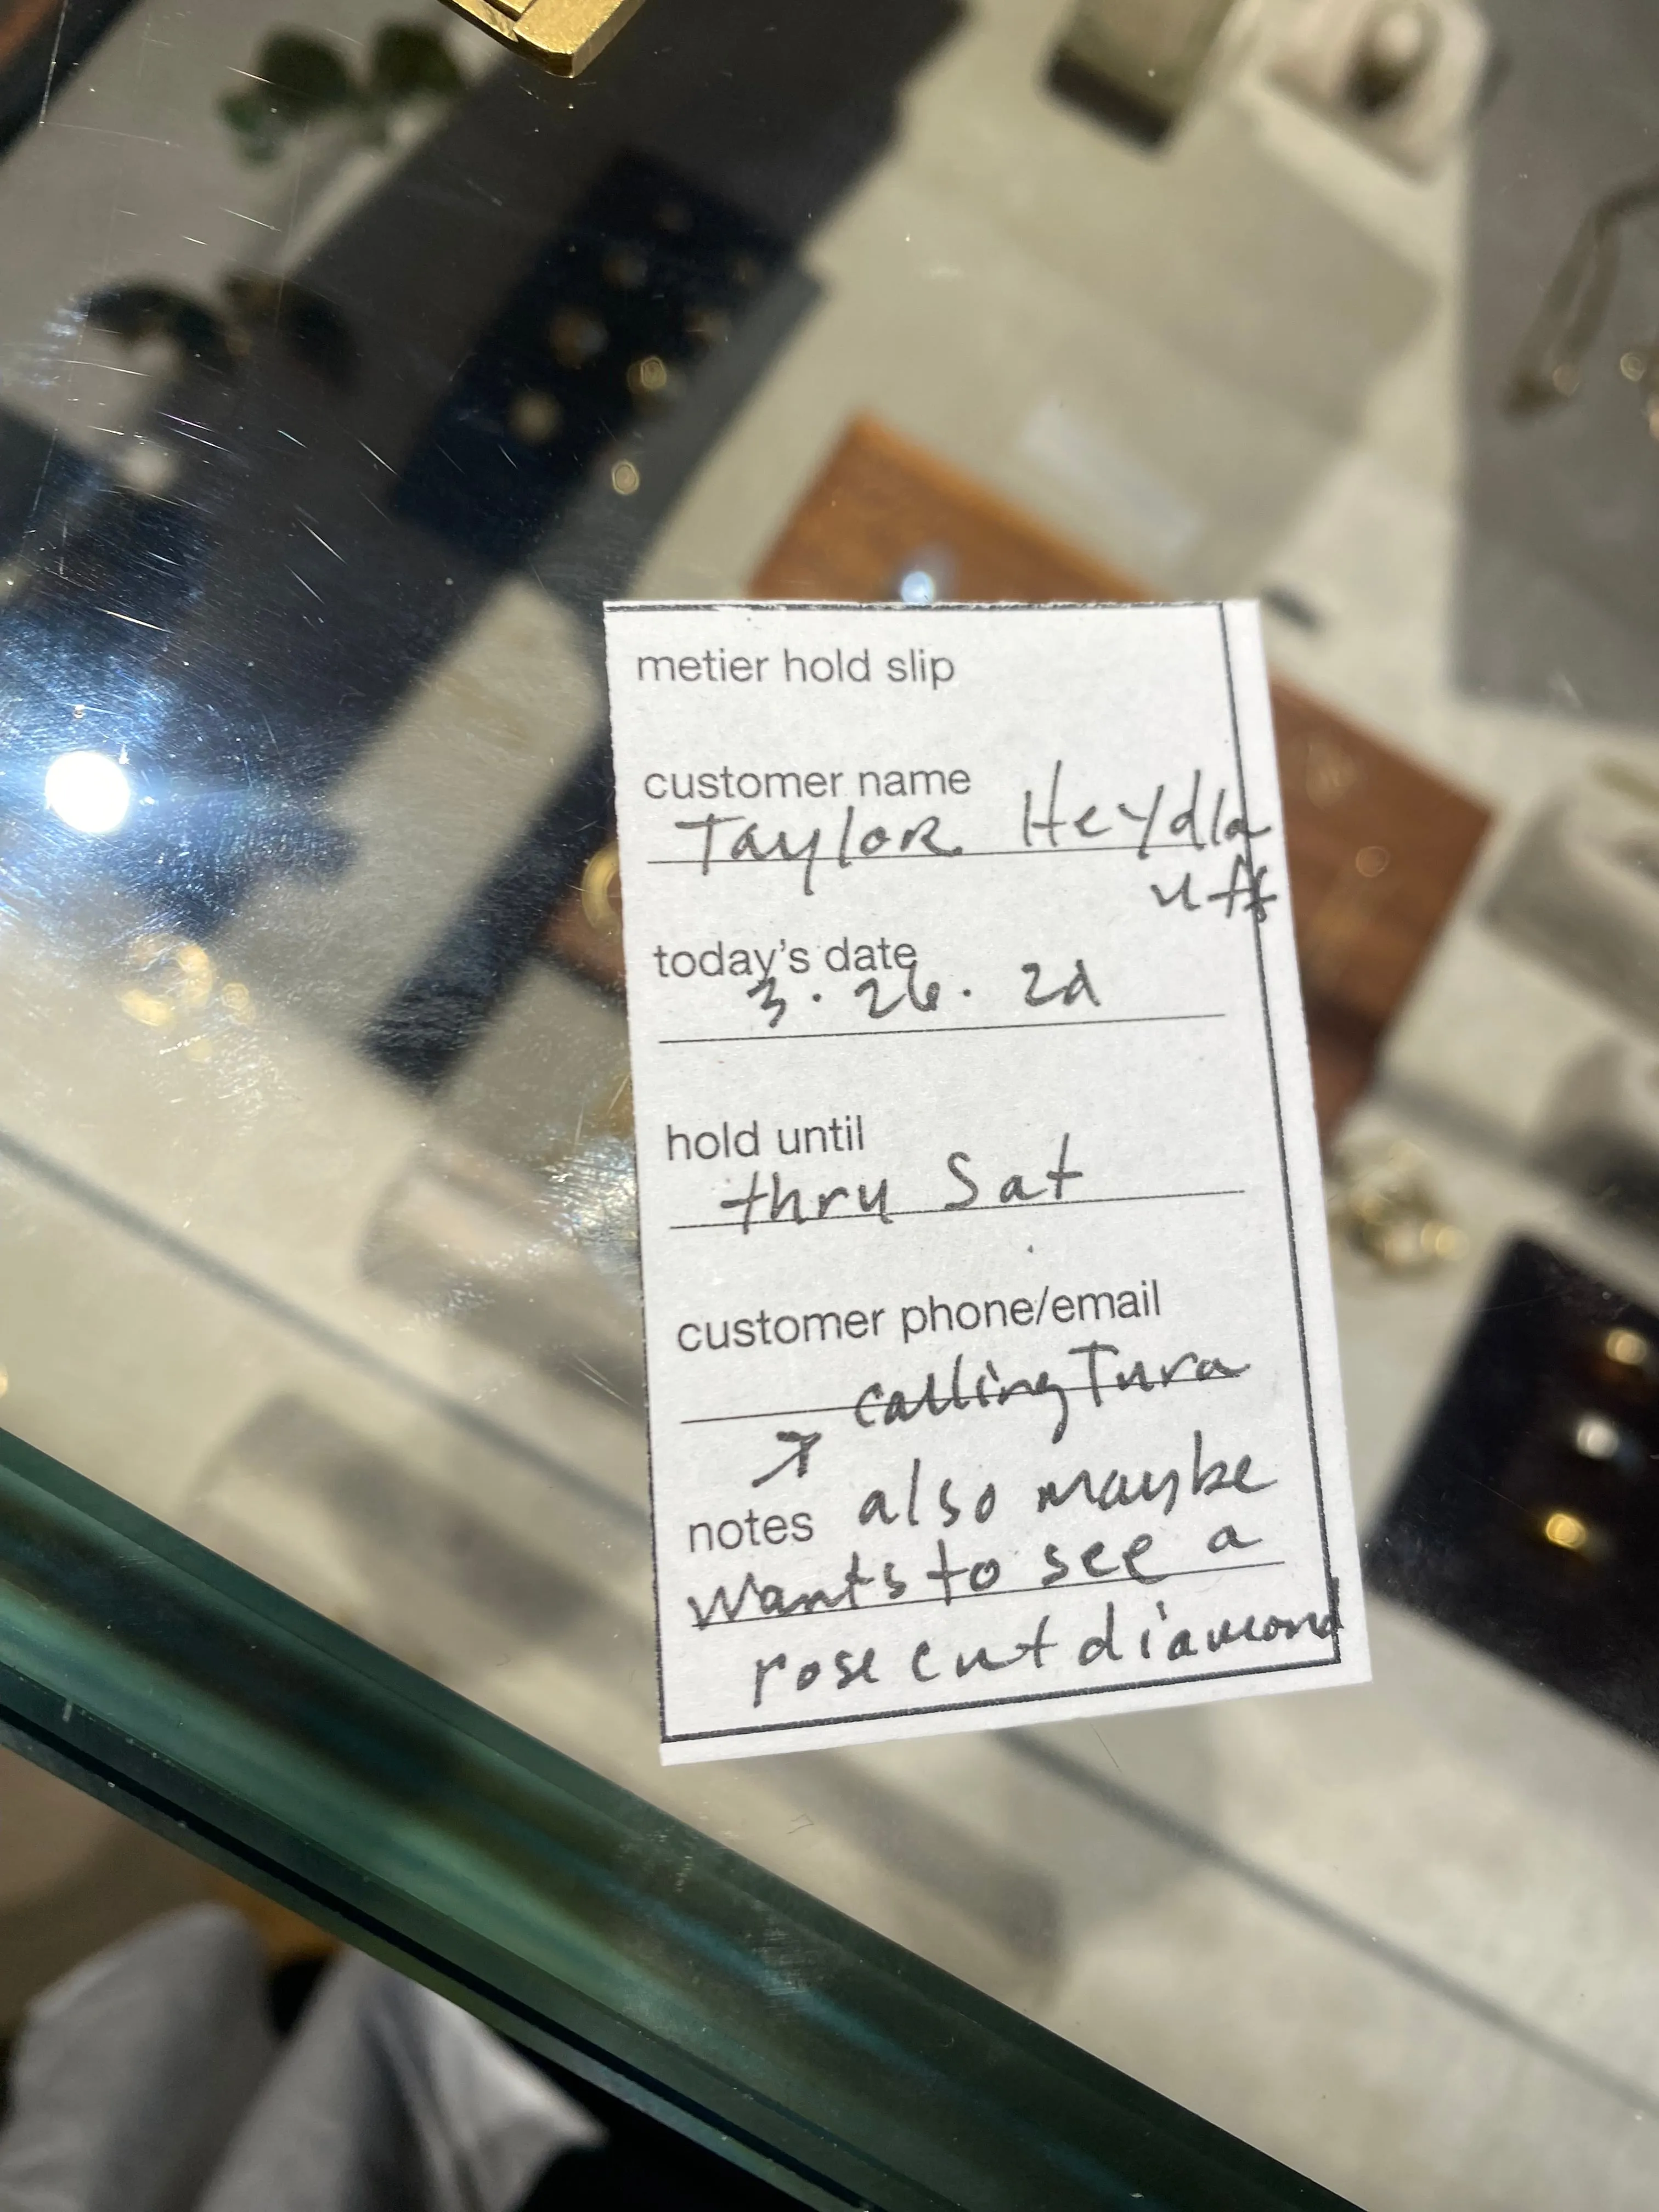 metier hold slip
customer name
Taylor Heydla
uff
today's date
3. 26. 22
hold until
thru Sat
customer phone/email
calling Tura
notes also maybe
wants to see a
rose cut diamond